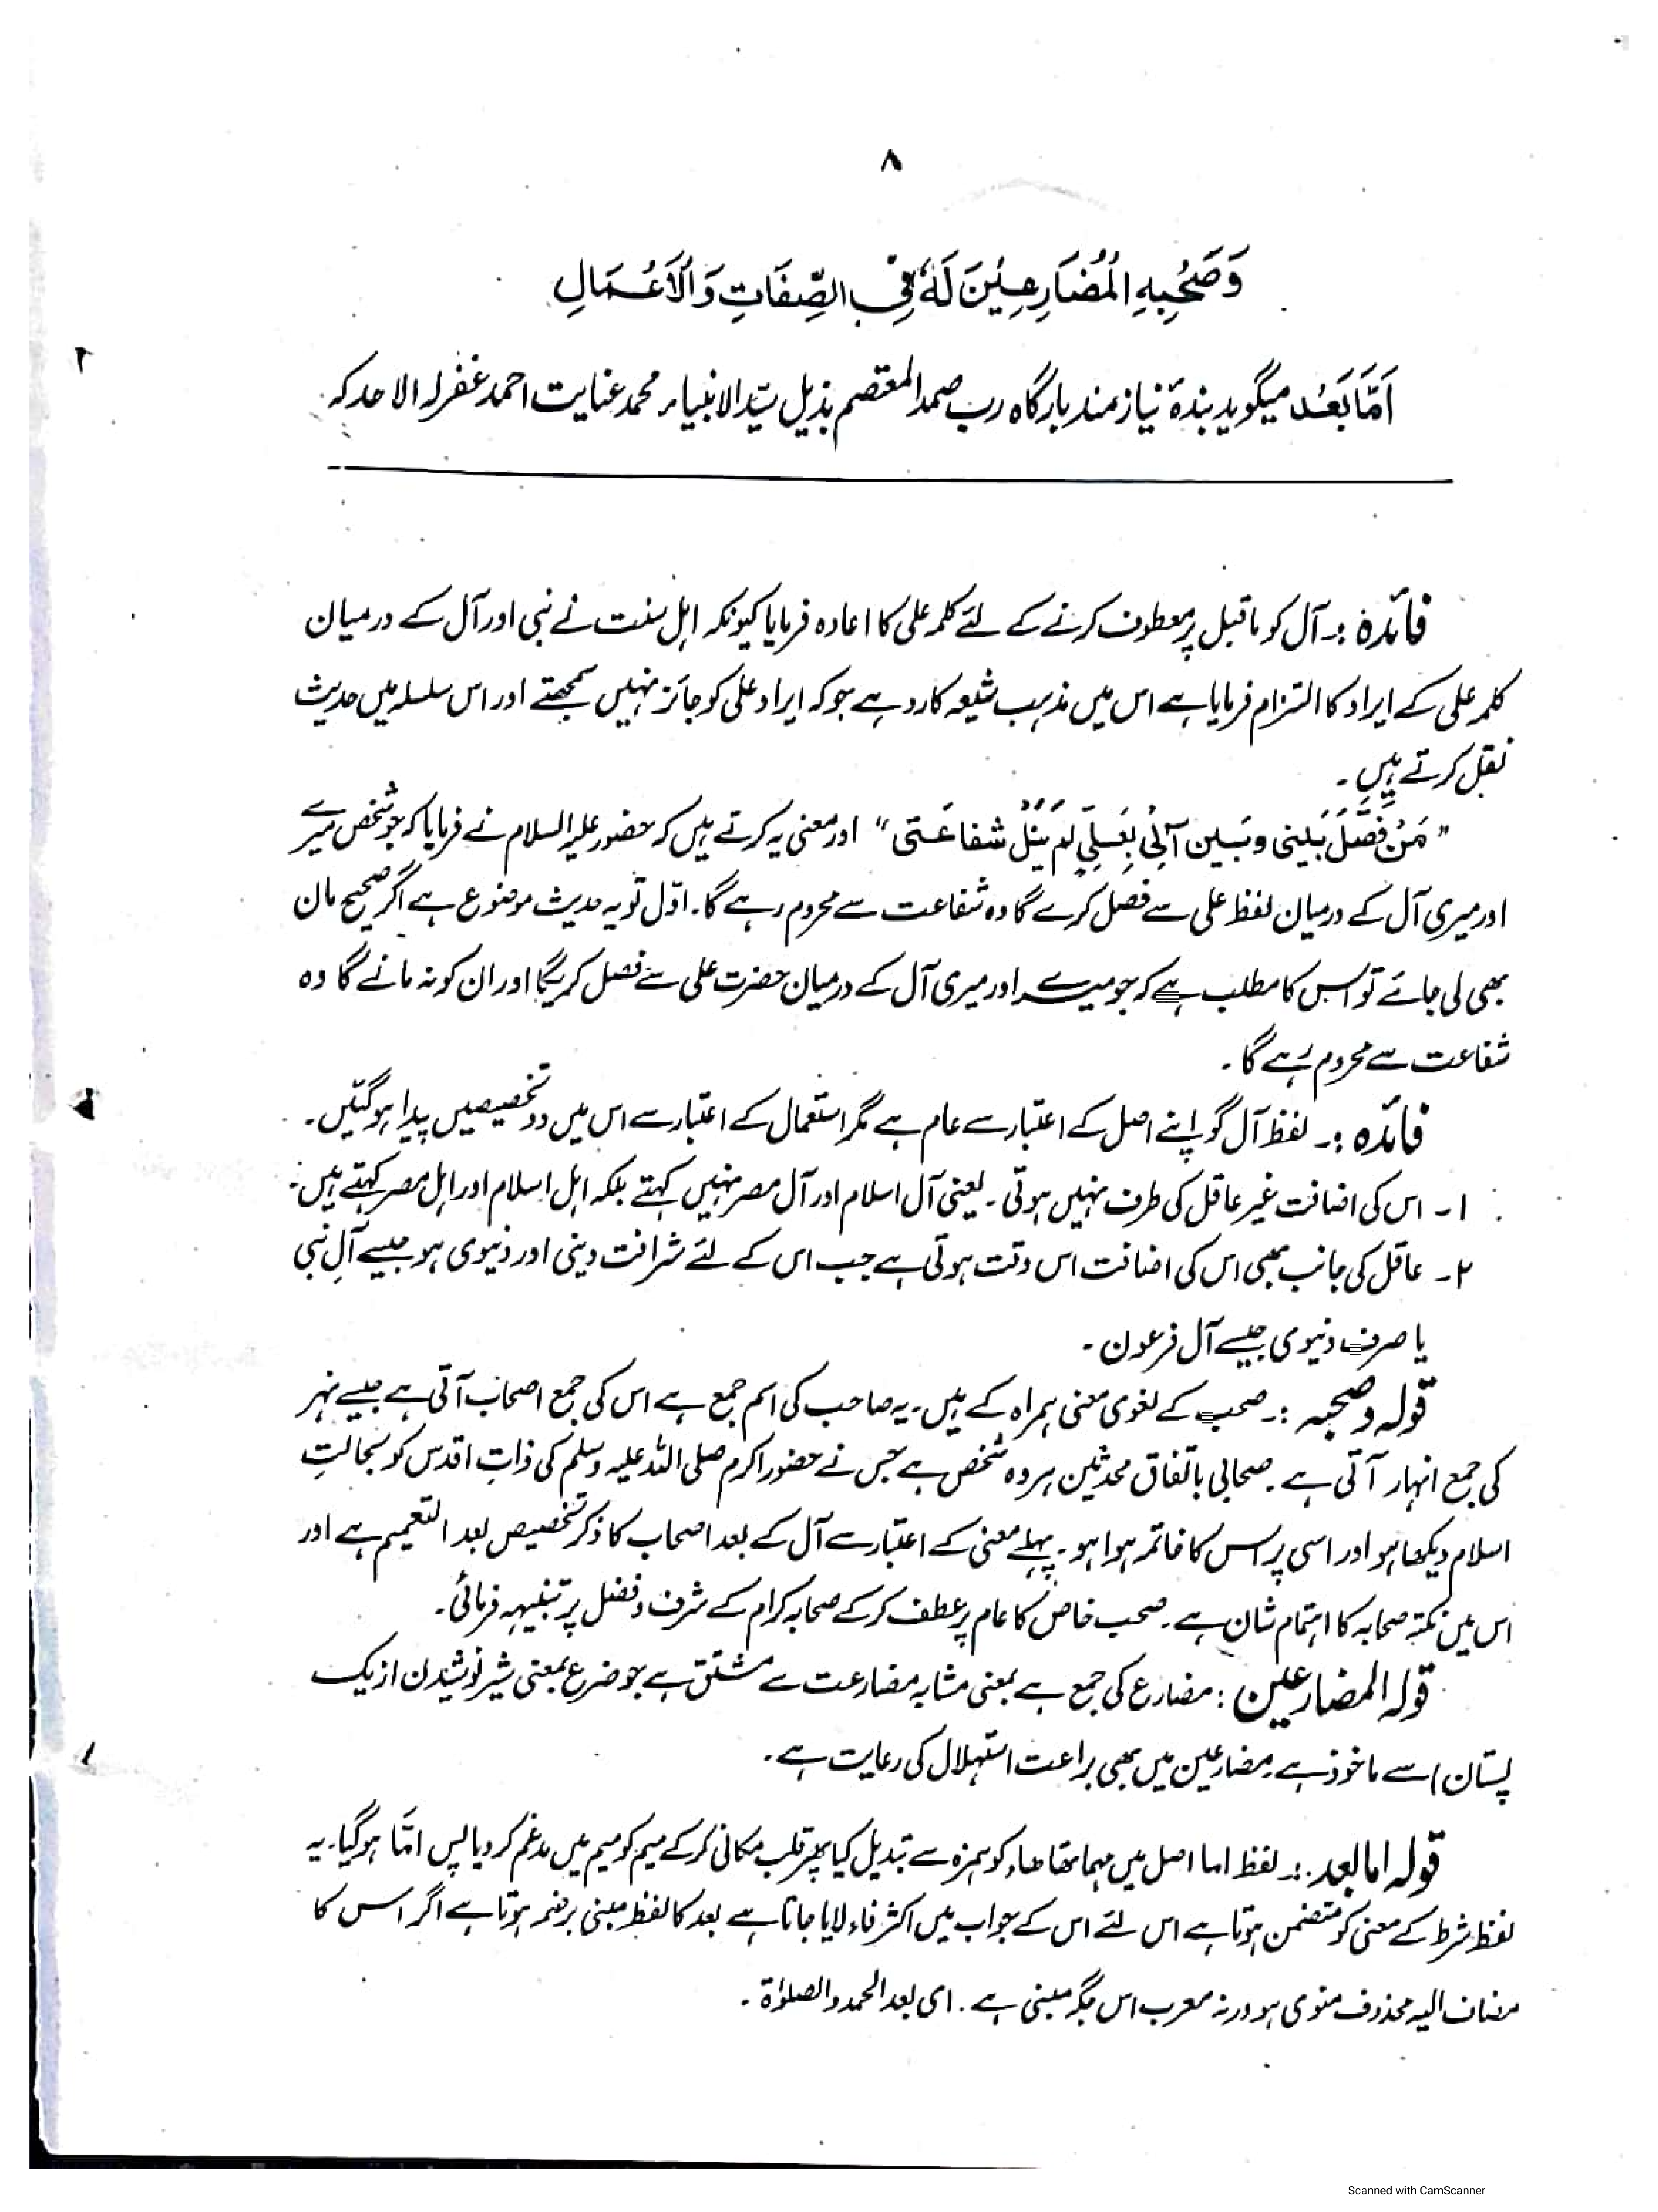 ۸
وَصَحْبِهِ الْمُضَارِعِيْنَ لَهٗ فِي الصِّفَاتِ وَالْاَعْمَالِ
اَمَّا بَعْد میگوید بندۂ نیازمند بارگاہ رب صمد المعتصم بذیل سیّد الانبیاء محمد عنایت احمد غفرلہ الاحد کہ
فائدہ :۔ آل کو ماقبل پر معطوف کرنے کے لئے کلمہ علی کا اعادہ فرمایا کیونکہ اہل سنت نے نبی اور آل کے درمیان
کلمہ علی کے ایراد کا التزام فرمایا ہے اس میں مذہب شیعہ کا رد ہے جو کہ ایراد علی کو جائز نہیں سمجھتے اور اس سلسلہ میں حدیث
نقل کرتے ہیں ۔
" مَنْ فَصَّلَ بَيْنِی وبَین آلِیْ بِعَلِیٍّ لم یَنَلْ شفاعَتی " اور معنی یہ کرتے ہیں کہ حضور علیہ السلام نے فرمایا کہ جو شخص میرے
اور میری آل کے درمیان لفظ علی سے فصل کرے گا وہ شفاعت سے محروم رہے گا۔ اوّل تو یہ حدیث موضوع ہے اگر صحیح مان
بھی لی جائے تو اس کا مطلب ہے کہ جو میرے اور میری آل کے درمیان حضرت علی سے فصل کریگا اور ان کو نہ مانے گا وہ
شفاعت سے محروم رہے گا ۔
فائدہ :۔ لفظ آل گو اپنے اصل کے اعتبار سے عام ہے مگر استعمال کے اعتبار سے اس میں دو تخصیصیں پیدا ہوگئیں ۔
۱۔ اس کی اضافت غیر عاقل کی طرف نہیں ہوتی ۔ یعنی آل اسلام اور آل مصر نہیں کہتے بلکہ اہل اسلام اور اہل مصر کہتے ہیں۔
۲۔ عاقل کی جانب بھی اس کی اضافت اس وقت ہوتی ہے جب اس کے لئے شرافت دینی اور دنیوی ہو جیسے آلِ نبی
یا صرف دنیوی جیسے آل فرعون ۔
قولہ وصحبہ :۔ صحب کے لغوی معنی ہمراہ کے ہیں۔ یہ صاحب کی اسم جمع ہے اس کی جمع اصحاب آتی ہے جیسے نہر
کی جمع انہار آتی ہے ۔ صحابی باتفاق محدثین ہر وہ شخص ہے جس نے حضور اکرم صلی اللہ علیہ وسلم کی ذات اقدس کو بحالتِ
اسلام دیکھا ہو اور اسی پر اس کا خاتمہ ہوا ہو ۔ پہلے معنی کے اعتبار سے آل کے بعد اصحاب کا ذکر تخصیص بعد التعمیم ہے اور
اس میں نکتہ صحابہ کا اہتمام شان ہے ۔ صحب خاص کا عام پر عطف کرکے صحابہ کرام کے شرف و فضل پر تنبیہہ فرمائی ۔
قولہ المضارعین : مضارع کی جمع ہے بمعنی مشابہ مضارعت سے مشتق ہے جو ضرع بمعنی شیر نوشیدن از یک
پستان) سے ماخوذ ہے مضارعین میں بھی براعت استہلال کی رعایت ہے ۔
قولہ اما بعد :۔ لفظ اما اصل میں مہما تھا ھاء کو ہمزہ سے تبدیل کیا پھر قلب مکانی کرکے میم کو میم میں مدغم کر دیا پس امّا ہوگیا۔ یہ
لفظ شرط کے معنی کو متضمن ہوتا ہے اس لئے اس کے جواب میں اکثر فاء لایا جاتا ہے بعد کا لفظ مبنی بر ضم ہوتا ہے اگر اس کا
مضاف الیہ محذوف منوی ہو ورنہ معرب اس جگہ مبنی ہے ۔ ای بعد الحمد والصلوٰۃ ۔
Scanned with CamScanner